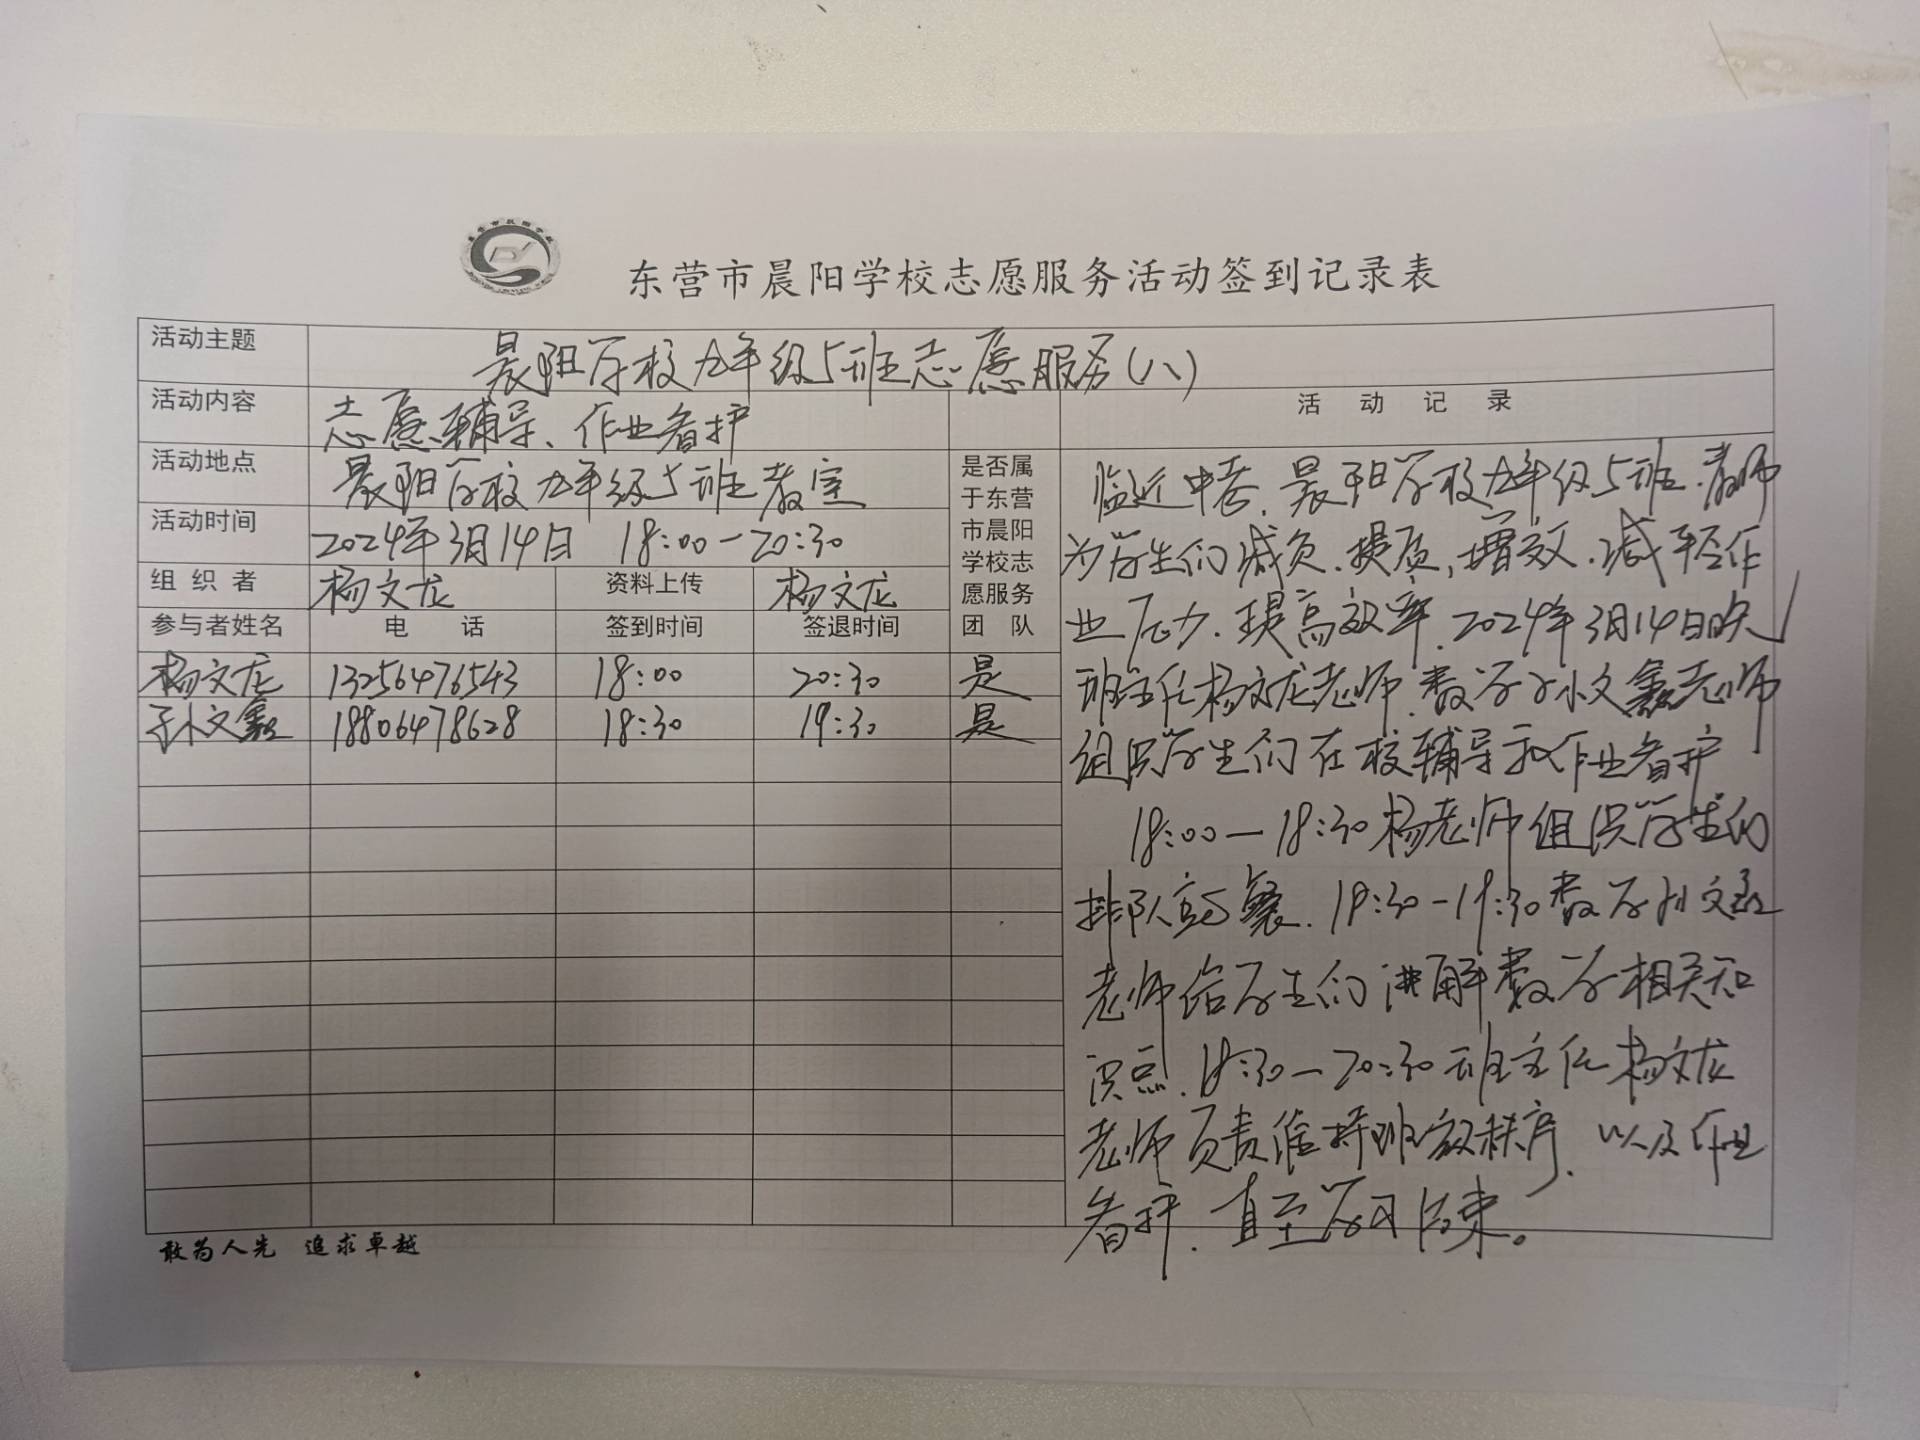 东营市晨阳学校志愿服务活动签到记录表
活动主题 晨阳学校九年级5班志愿服务(八)
活动内容 志愿辅导、作业看护
活动记录
活动地点 晨阳学校九年级5班教室
活动时间 2024年3月14日 18:00-20:30
组织者 杨文龙 资料上传 杨文龙
是否属
于东营
市晨阳
学校志
愿服务
团队
参与者姓名 电话 签到时间 签退时间
杨文龙 13256476543 18:00 20:30 是
孙文鑫 18806478628 18:30 19:30 是
临近中考,晨阳学校九年级5班教师
为学生们减负、提质,增效,减轻作
业压力,提高效率,2024年3月14日晚
班主任杨文龙老师,数学孙文鑫老师
组织学生们在校辅导和作业看护
18:00-18:30杨老师组织学生们
排队就餐,18:30-19:30数学孙文鑫
老师给学生们讲解数学相关知
识点,18:30-20:30班主任杨文龙
老师负责维持班级秩序,以及作业
看护,直至学习结束。
敢为人先 追求卓越